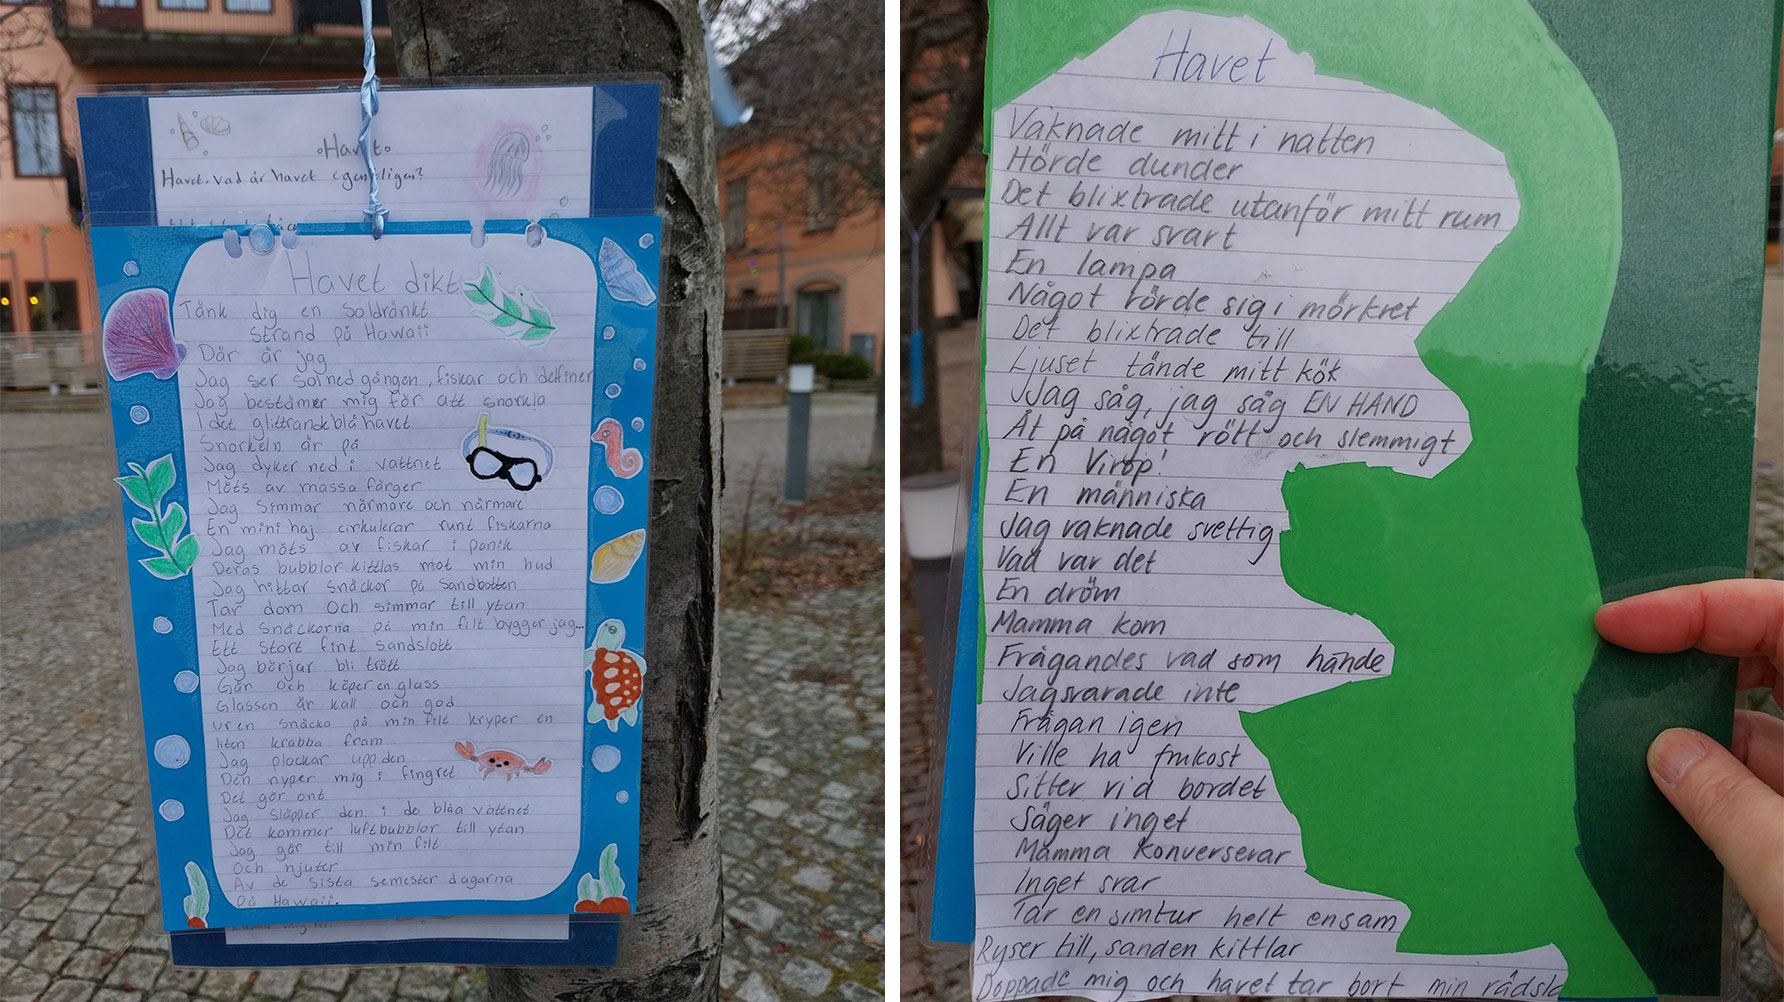 Havet
Havet. Vad är havet egentligen?
Havet dikt
Tänk dig en soldränkt
Strand på Hawaii
Där är jag
Jag ser solnedgången, fiskar och delfiner
Jag bestämer mig för att snorkla
I det glittrande blå havet
Snorkeln är på
Jag dyker ned i vattnet
Möts av massa färger
Jag simmar närmare och närmare
En mini haj cirkulerar runt fiskarna
Jag möts av fiskar i panik
Deras bubblor kittlas mot min hud
Jag hittar snäckor på sandbotten
Tar dom och simmar till ytan
Med snäckorna på min filt bygger jag...
Ett stort fint sandslott
Jag börjar bli trött
Går och köper en glass
Glassen är kall och god
ur en snäcka på min filt kryper en
liten krabba fram
Jag plockar upp den
Den nyper mig i fingret
Det gör ont
Jag släpper den i de blåa vattnet
Det kommer luftbubblor till ytan
Jag går till min filt
Och njuter
Av de sista semester dagarna
på Hawaii.
Havet
Vaknade mitt i natten
Hörde dunder
Det blixtrade utanför mitt rum
Allt var svart
En lampa
Något rörde sig i mörkret
Det blixtrade till
Ljuset tände mitt kök
Jag såg, jag såg EN HAND
Åt på något rött och slemmigt
En
En människa
Jag vaknade svettig
Vad var det
En dröm
Mamma kom
Frågandes vad som hände
Jag svarade inte
Frågan igen
Ville ha frukost
Sitter vid bordet
Säger inget
Mamma konverserar
Inget svar
Tar en simtur helt ensam
Ryser till, sanden kittlar
Doppade mig och havet tar bort min